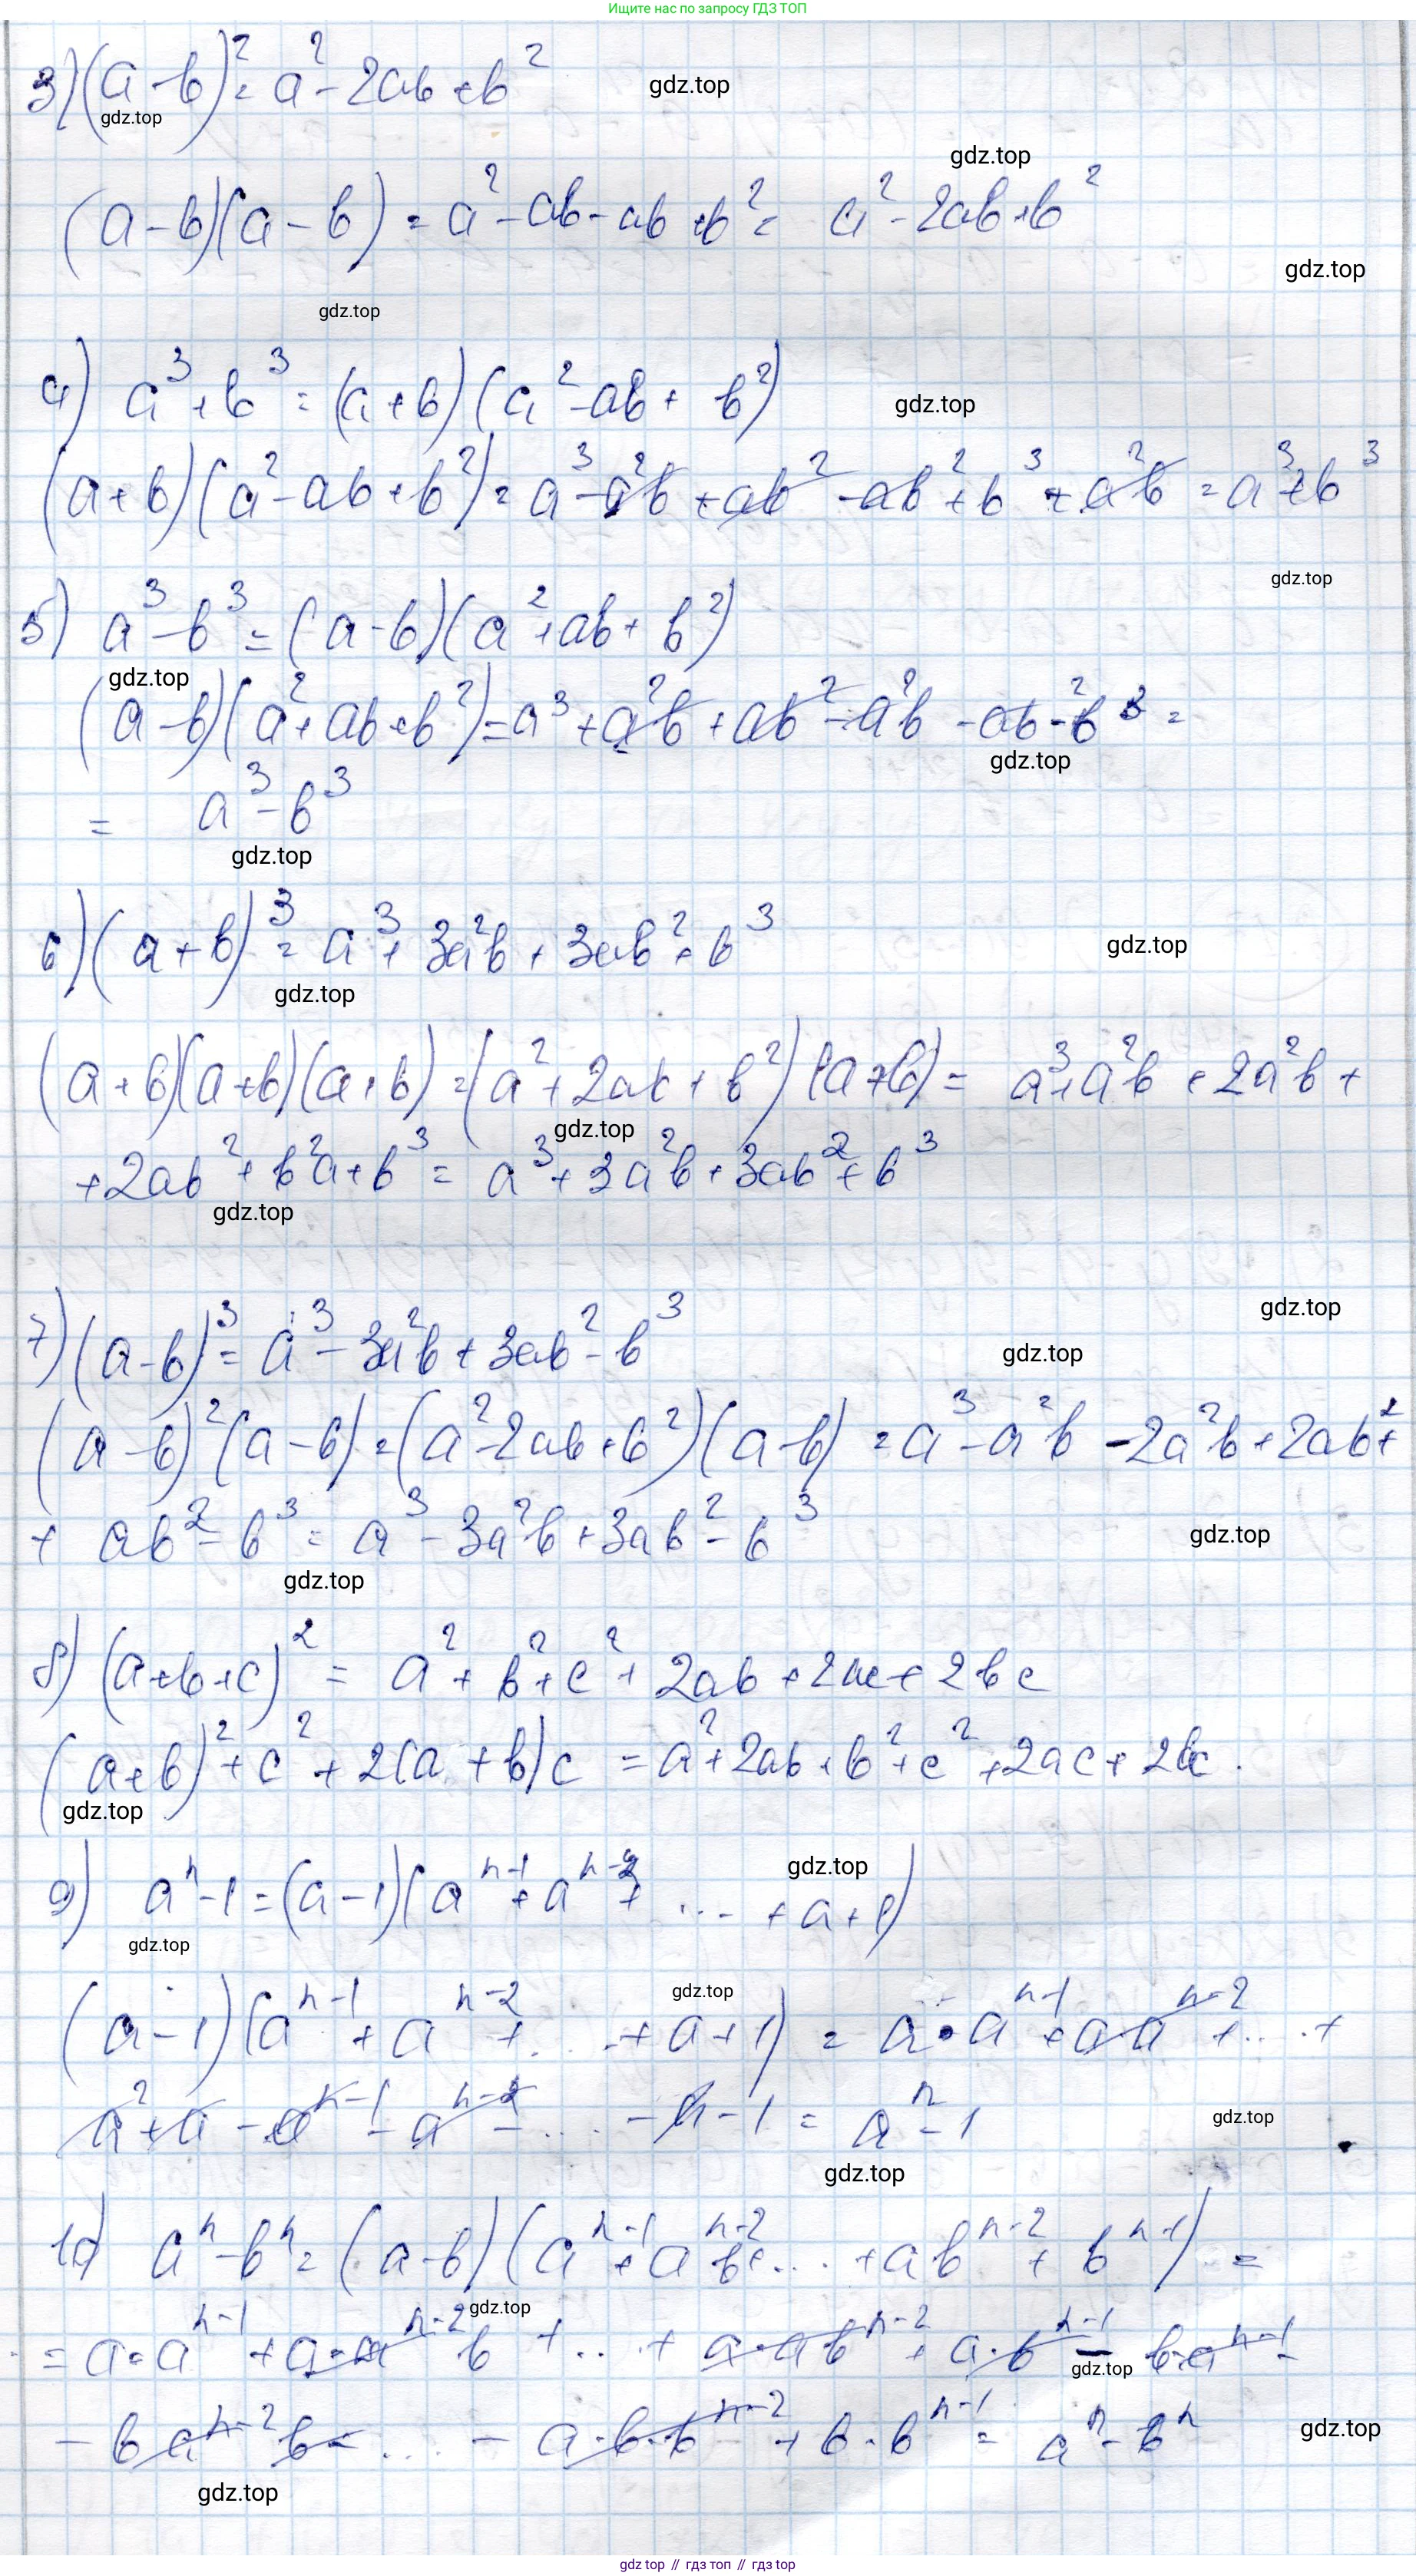 Ищите нас по запросу ГДЗ ТОП
3) (a-b)² = a² - 2ab + b²
gdz.top
gdz.top
gdz.top
(a-b)(a-b) = a² - ab - ab + b² = a² - 2ab + b²
gdz.top
gdz.top
4) a³ + b³ = (a+b)(a² - ab + b²)
gdz.top
(a+b)(a² - ab + b²) = a³ - a²b + ab² - ab² + b³ + a²b = a³ + b³
gdz.top
5) a³ - b³ = (a-b)(a² + ab + b²)
gdz.top
(a-b)(a² + ab + b²) = a³ + a²b + ab² - a²b - ab² - b³ =
gdz.top
= a³ - b³
gdz.top
6) (a+b)³ = a³ + 3a²b + 3ab² + b³
gdz.top
gdz.top
(a+b)(a+b)(a+b) = (a² + 2ab + b²)(a+b) = a³ + a²b + 2a²b +
gdz.top
+ 2ab² + b²a + b³ = a³ + 3a²b + 3ab² + b³
gdz.top
gdz.top
7) (a-b)³ = a³ - 3a²b + 3ab² - b³
gdz.top
(a-b)²(a-b) = (a² - 2ab + b²)(a-b) = a³ - a²b - 2a²b + 2ab² +
+ ab² - b³ = a³ - 3a²b + 3ab² - b³
gdz.top
gdz.top
8) (a+b+c)² = a² + b² + c² + 2ab + 2ac + 2bc
(a+b)² + c² + 2(a+b)c = a² + 2ab + b² + c² + 2ac + 2bc.
gdz.top
gdz.top
9) aⁿ - 1 = (a-1)(aⁿ⁻¹ + aⁿ⁻² + ... + a + 1)
gdz.top
gdz.top
(a-1)(aⁿ⁻¹ + aⁿ⁻² + ... + a + 1) = a·aⁿ⁻¹ + a·aⁿ⁻² + ... +
a² + a - aⁿ⁻¹ - aⁿ⁻² - ... - a - 1 = aⁿ - 1
gdz.top
gdz.top
10) aⁿ - bⁿ = (a-b)(aⁿ⁻¹ + aⁿ⁻²b + ... + abⁿ⁻² + bⁿ⁻¹) =
gdz.top
= a·aⁿ⁻¹ + a·aⁿ⁻²b + ... + a·abⁿ⁻² + a·bⁿ⁻¹ - b·aⁿ⁻¹ -
gdz.top
- baⁿ⁻²b - ... - a·b·bⁿ⁻² + b·bⁿ⁻¹ = aⁿ - bⁿ
gdz.top
gdz.top
gdz top // гдз топ // gdz top